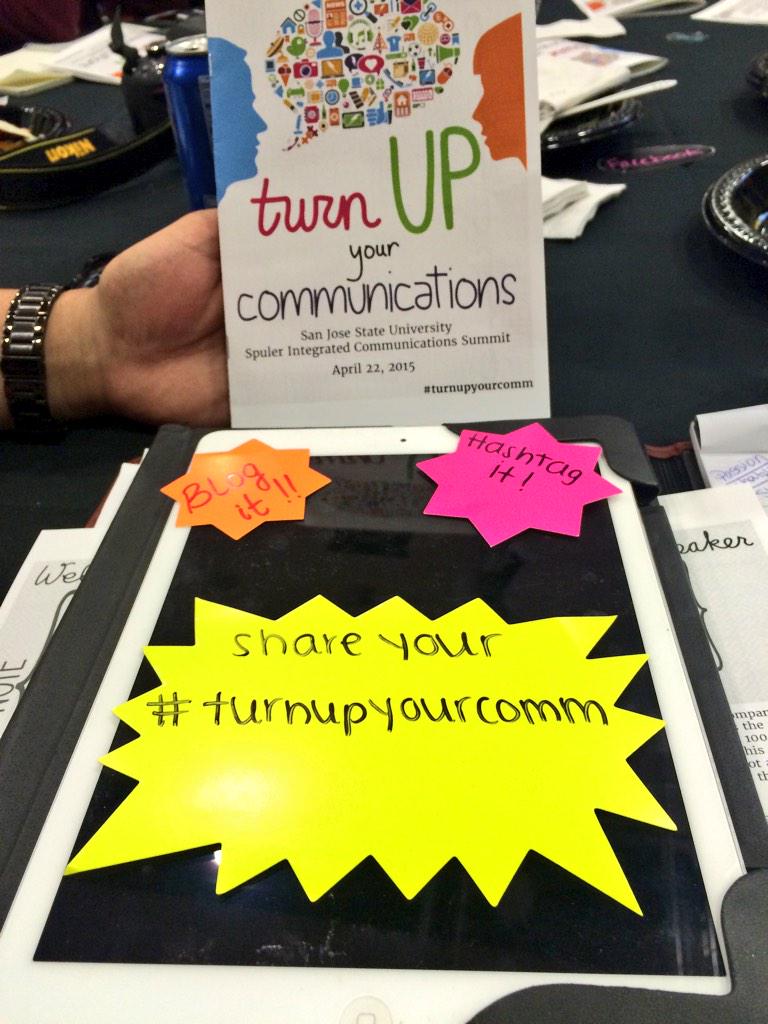 Nikon
Facebook
turn UP
your
communications
San Jose State University
Spuler Integrated Communications Summit
April 22, 2015
#turnupyourcomm
Blog
it!!
Hashtag
it!
share your
#turnupyourcomm
Wel
eaker
the
100
his